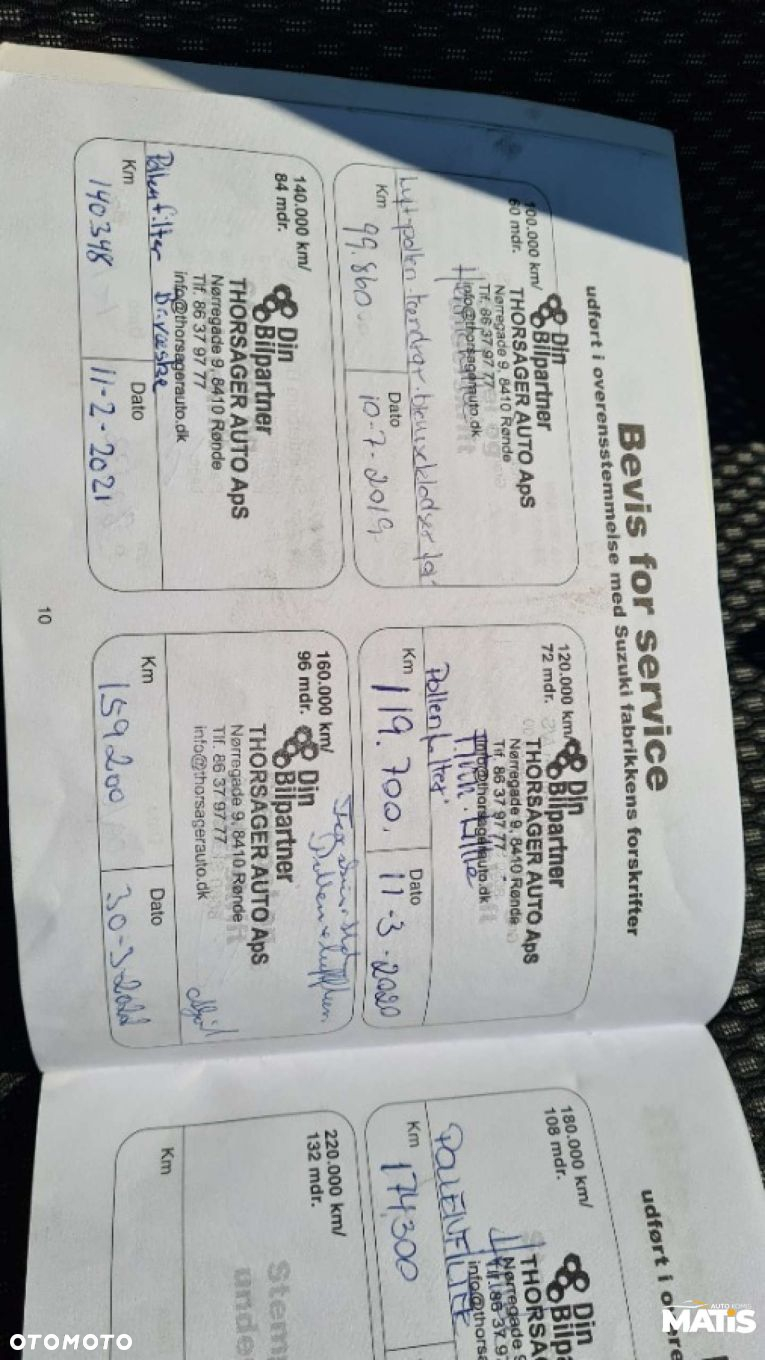 Bevis for service
udført i overensstemmelse med Suzuki fabrikkens forskrifter
100.000 km/
60 mdr.
Din
Bilpartner
THORSAGER AUTO ApS
Nørregade 9, 8410 Rønde
Tlf. 86 37 97 77
info@thorsagerauto.dk
Luft-pollen
Km
99.860
Dato
10-7-2019
120.000 km/
72 mdr.
Din
Bilpartner
THORSAGER AUTO ApS
Nørregade 9, 8410 Rønde
Tlf. 86 37 97 77
info@thorsagerauto.dk
Pollenfilter
Km
119.700.
Dato
11-3-2020
140.000 km/
84 mdr.
Din
Bilpartner
THORSAGER AUTO ApS
Nørregade 9, 8410 Rønde
Tlf. 86 37 97 77
info@thorsagerauto.dk
Pollenfilter Br.væske
Km
140348
Dato
11-2-2021
160.000 km/
96 mdr.
Din
Bilpartner
THORSAGER AUTO ApS
Nørregade 9, 8410 Rønde
Tlf. 86 37 97 77
info@thorsagerauto.dk
Km
159200
Dato
30-3-2022
10
udført i overe
180.000 km/
108 mdr.
Din
Bilpa
THORSA
Nørregade 9
Tlf. 86 37 9
info@thorsa
POLLENFILTER
Km
174300
220.000 km/
132 mdr.
Stem
unde
Km
OTOMOTO
AUTO KOMIS
MATIS